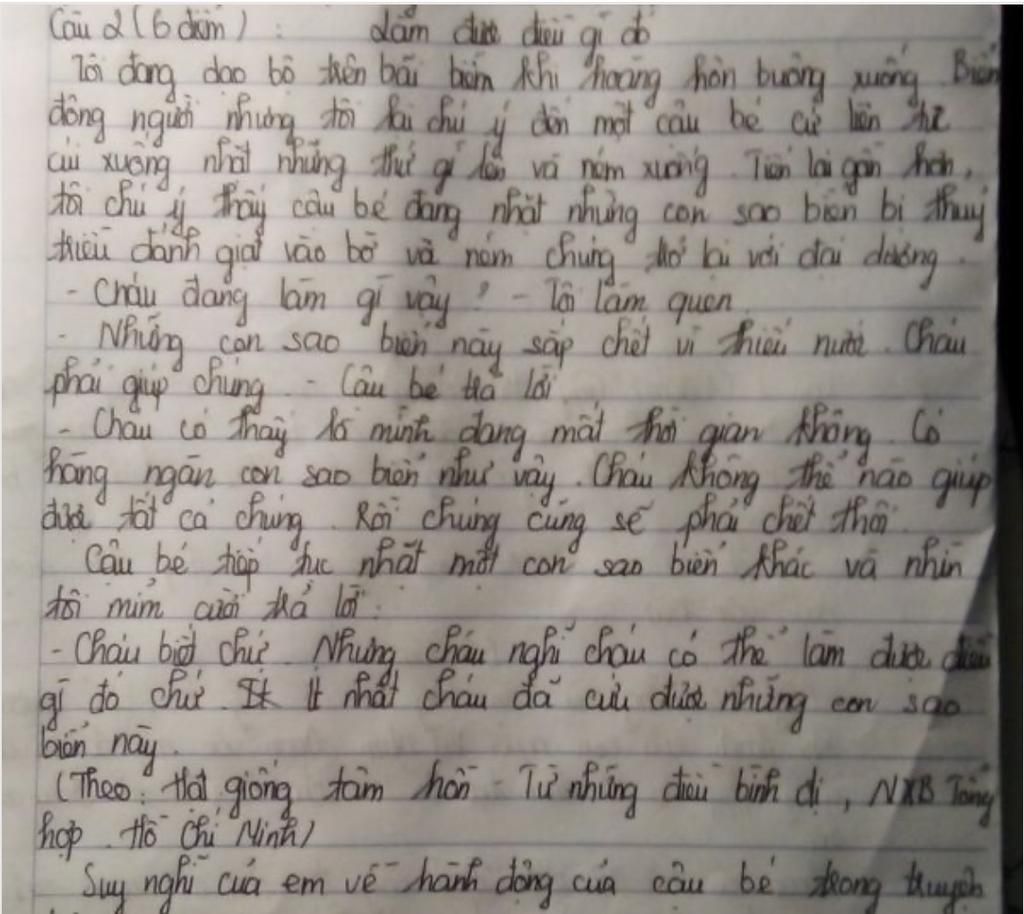 Câu 2 (6 điểm) : Làm được điều gì đó
Tôi đang dạo bộ trên bãi biển khi hoàng hôn buông xuống. Biển
đông người nhưng tôi lại chú ý đến một cậu bé cứ liên tục
cúi xuống nhặt những thứ gì lên và ném xuống. Tiến lại gần hơn,
tôi chú ý thấy cậu bé đang nhặt những con sao biển bị thuỷ
triều đánh giạt vào bờ và ném chúng trở lại với đại dương.
- Cháu đang làm gì vậy? - Tôi làm quen.
- Những con sao biển này sắp chết vì thiếu nước. Cháu
phải giúp chúng - Cậu bé trả lời
- Cháu có thấy là mình đang mất thời gian không. Có
hàng ngàn con sao biển như vậy. Cháu không thể nào giúp
được tất cả chúng. Rồi chúng cũng sẽ phải chết thôi.
Cậu bé tiếp tục nhặt một con sao biển khác và nhìn
tôi mỉm cười trả lời:
- Cháu biết chứ. Nhưng cháu nghĩ cháu có thể làm được điều
gì đó chứ. Ít nhất cháu đã cứu được những con sao
biển này.
(Theo: Hạt giống tâm hồn - Từ những điều bình dị, NXB Tổng
hợp Hồ Chí Minh)
Suy nghĩ của em về hành động của cậu bé trong truyện